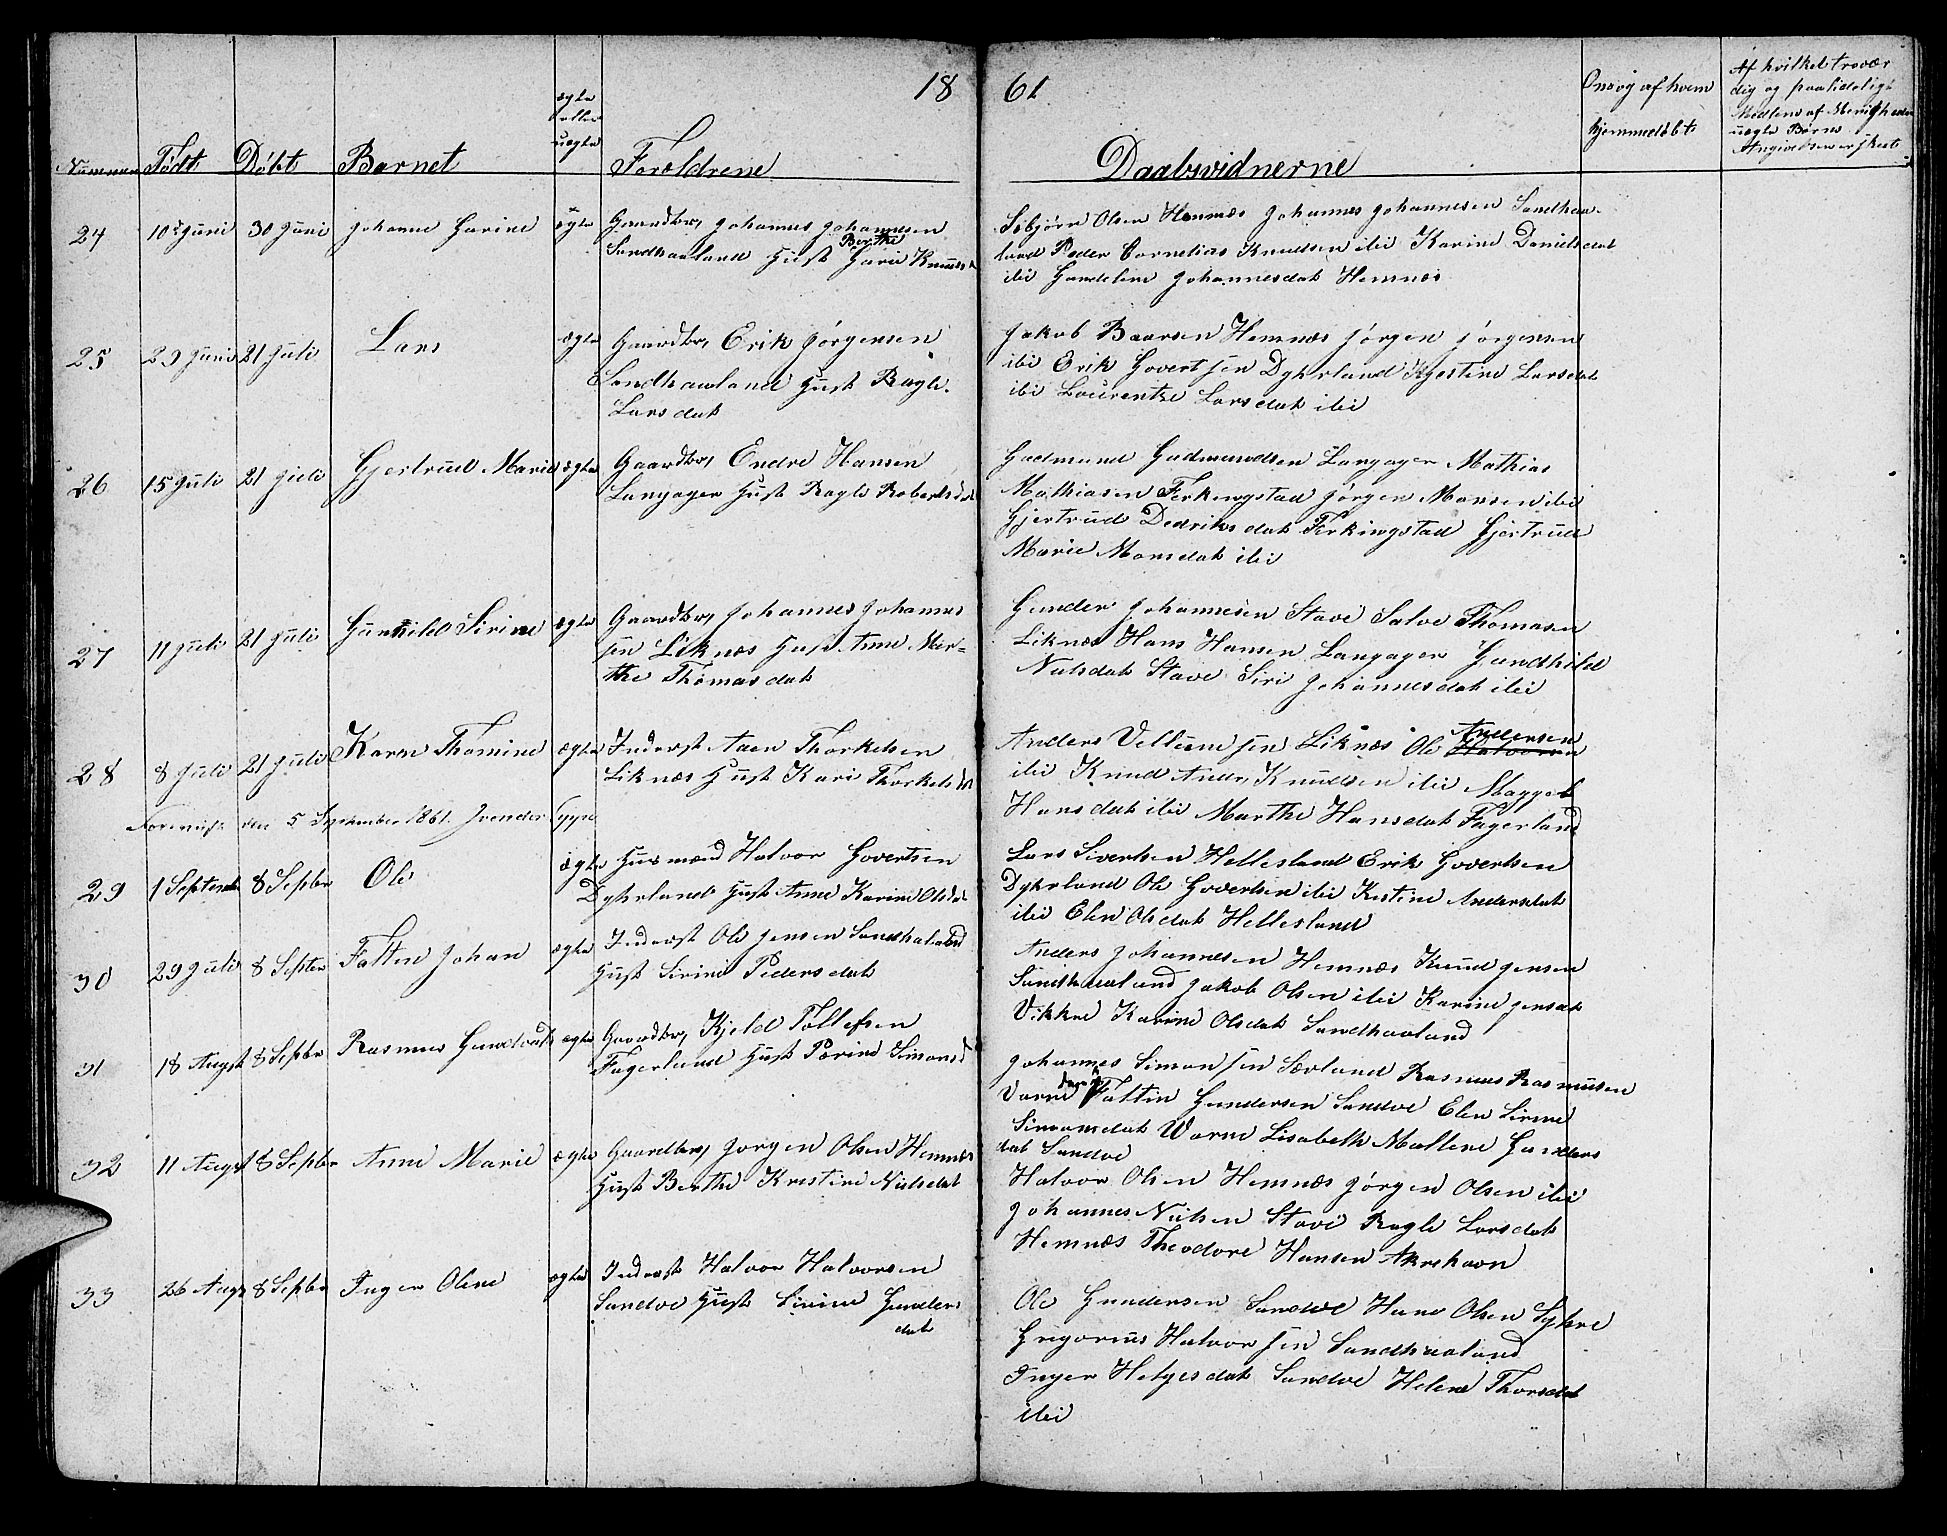 18 61
Nummer Født Døbt Barnet ægte eller uægte Forældrene Daabsvidnerne Om og af hvem hjemmedøbt Af hvilket troværdig og paalideligt Medlem af Menigheden uægte Børns Angivelse er skeet
24 10de Juni 30 Juni Johanne Garine ægte Gaardbr, Johannes Johannesen
Sandhaaland Hust Berthe Garie Knuds
Johannes Johannesen Sandhaa-
land Peder Cornelias Knudsen ibi Karine Danielsdat
ibi Gundeline Johannesdat Hemnæs
25 29 Juni 21 Juli Lars ægte Gaardbr, Erik Jørgensen
Sandhaaland Hust Ragle.
Larsdat
Jakob Baarsen Hemnæs Jørgen Jørgensen
ibi Erik Govertsen Dyhrland Kjestine Larsdat
ibi Laurentze Larsdat ibi
26 15 Juli 21 Juli Gjertrud Marie ægte Gaardbr, Endre Hansen
Langager Hust Ragle Robertsdat
Gudmund Gudmundsen Langager Mathias
Mathiasen Ferkingstad Jørgen Monsen ibi
Gjertrud Dedriksdat Ferkingstad Gjertrud
Marie Monsdat ibi
27 11 Juli 21 Juli Gunhild Sirine ægte Gaardbr, Johannes Johannes
sen Liknæs Hust Anne Mar-
the Thomasdat
Gunder Johannesen Stave Salve Thomasen
Liknæs Hans Hansen Langager Gundhild
Nilsdat Stave Siri Johannesdat ibi
28 8 Juli 21 Juli Karen Thomine ægte Inderst Aaen Thorkelsen
Liknæs Hust Kari Thorkelsdat
Anders Vellumsen Liknæs Ole Andersen
ibi Knud Andr, Knudsen ibi Magget
Hansdat ibi Marthe Hansdat Fagerland
den 5 September 1861.
29 1 Septemb 8 Septbr Ole ægte Husmænd Halvor Govertsen
Dyhrland Hust Anne Karine Olsdat
Lars Sivertsen Hellesland Erik Govertsen
Dyhrland Ole Govertsen ibi Kestine Andersdat
ibi Elen Olsdat Hellesland
30 29 Juli 8 Septbr Tollen Johan ægte Inderst Ole Jensen Sandhaland
Hust Sirine Pedersdat
Anders Johannesen Hemnæs Knud Jensen
Sandhaaland Jakob Olsen ibi Karine Jensdat
Vikkre Karine Olsdat Sandhaaland
31 18 Augst 8 Septbr Rasmus ægte Gaardbr, Kjeld Tollefsen
Fagerland Hust Pærine Simonsd
Johannes Simonsen Særland Rasmus Rasmussen
Vorne Tollin Gundersen Sandve Elen Sirine
Simonsdat Vorne Lisabeth Mallene Gunders
dat Sandve
32 11 Augst 8 Septbr Anne Marie ægte Gaardbr, Jørgen Olsen Hemnæs
Hust Berthe Kristine Nilsdat
Halvor Olsen Hemnæs Jørgen Olsen ibi
Johannes Nilsen Stave Ragle Larsdat
Hemnæs Theodore Hansen Akrehavn
33 26 Augs 8 Septbr Inger Oline ægte Inderst Halvor Halvorsen
Sandve Hust Sirine Gunders
dat
Ole Gundersen Sandve Hans Olsen Syhre
Gregorius Halvorsen Sandhaaland
Inger Helgesdat Sandve Helene Thorsdat
ibi